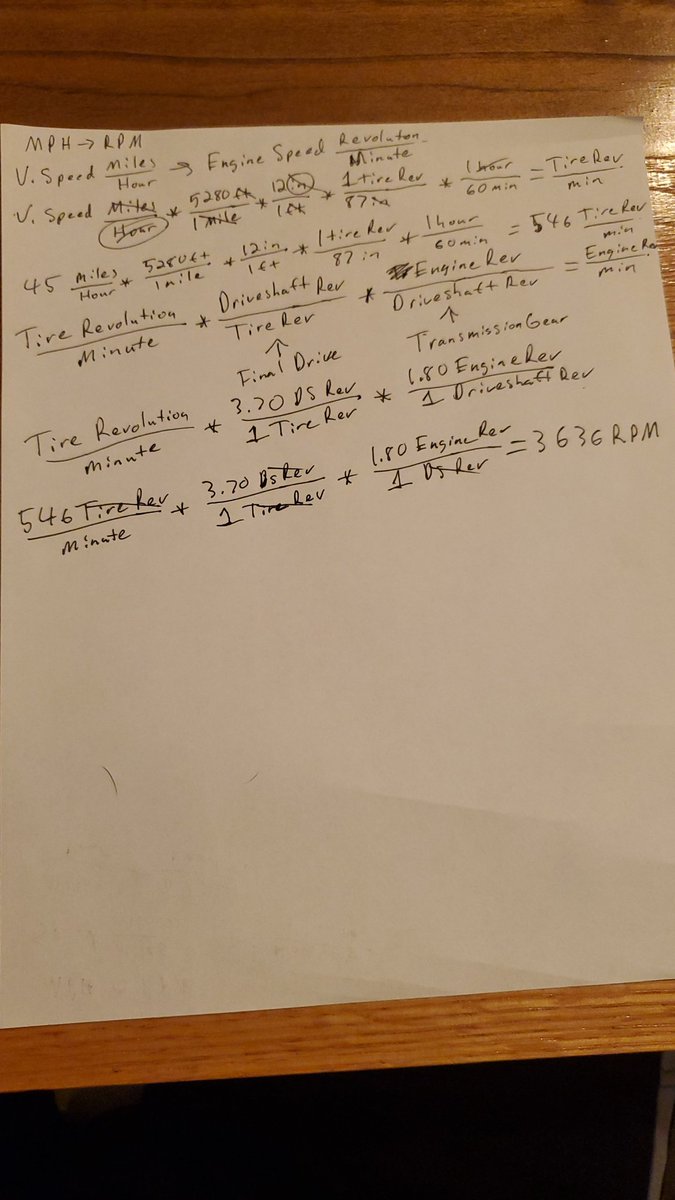 MPH → RPM
V. Speed Miles/Hour → Engine Speed Revoluton/Minute
V. Speed Miles/Hour * 5280 ft/1 mile * 12 in/1 ft * 1 tire Rev/87 in * 1 hour/60 min = Tire Rev/min
45 miles/Hour * 5280 ft/1 mile * 12 in/1 ft * 1 tire Rev/87 in * 1 hour/60 min = 546 Tire Rev/min
Tire Revolution/Minute * Driveshaft Rev/Tire Rev * Engine Rev/Driveshaft Rev = Engine Rev/min
↑ Final Drive ↑ Transmission Gear
Tire Revolution/minute * 3.70 DS Rev/1 Tire Rev * 1.80 Engine Rev/1 Driveshaft Rev
546 Tire Rev/minute * 3.70 DS Rev/1 Tire Rev * 1.80 Engine Rev/1 DS Rev = 3636 RPM